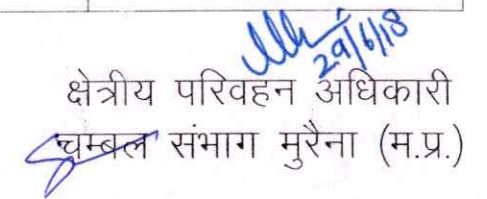 29/6/18
क्षेत्रीय परिवहन अधिकारी
चम्बल संभाग मुरैना (म.प्र.)